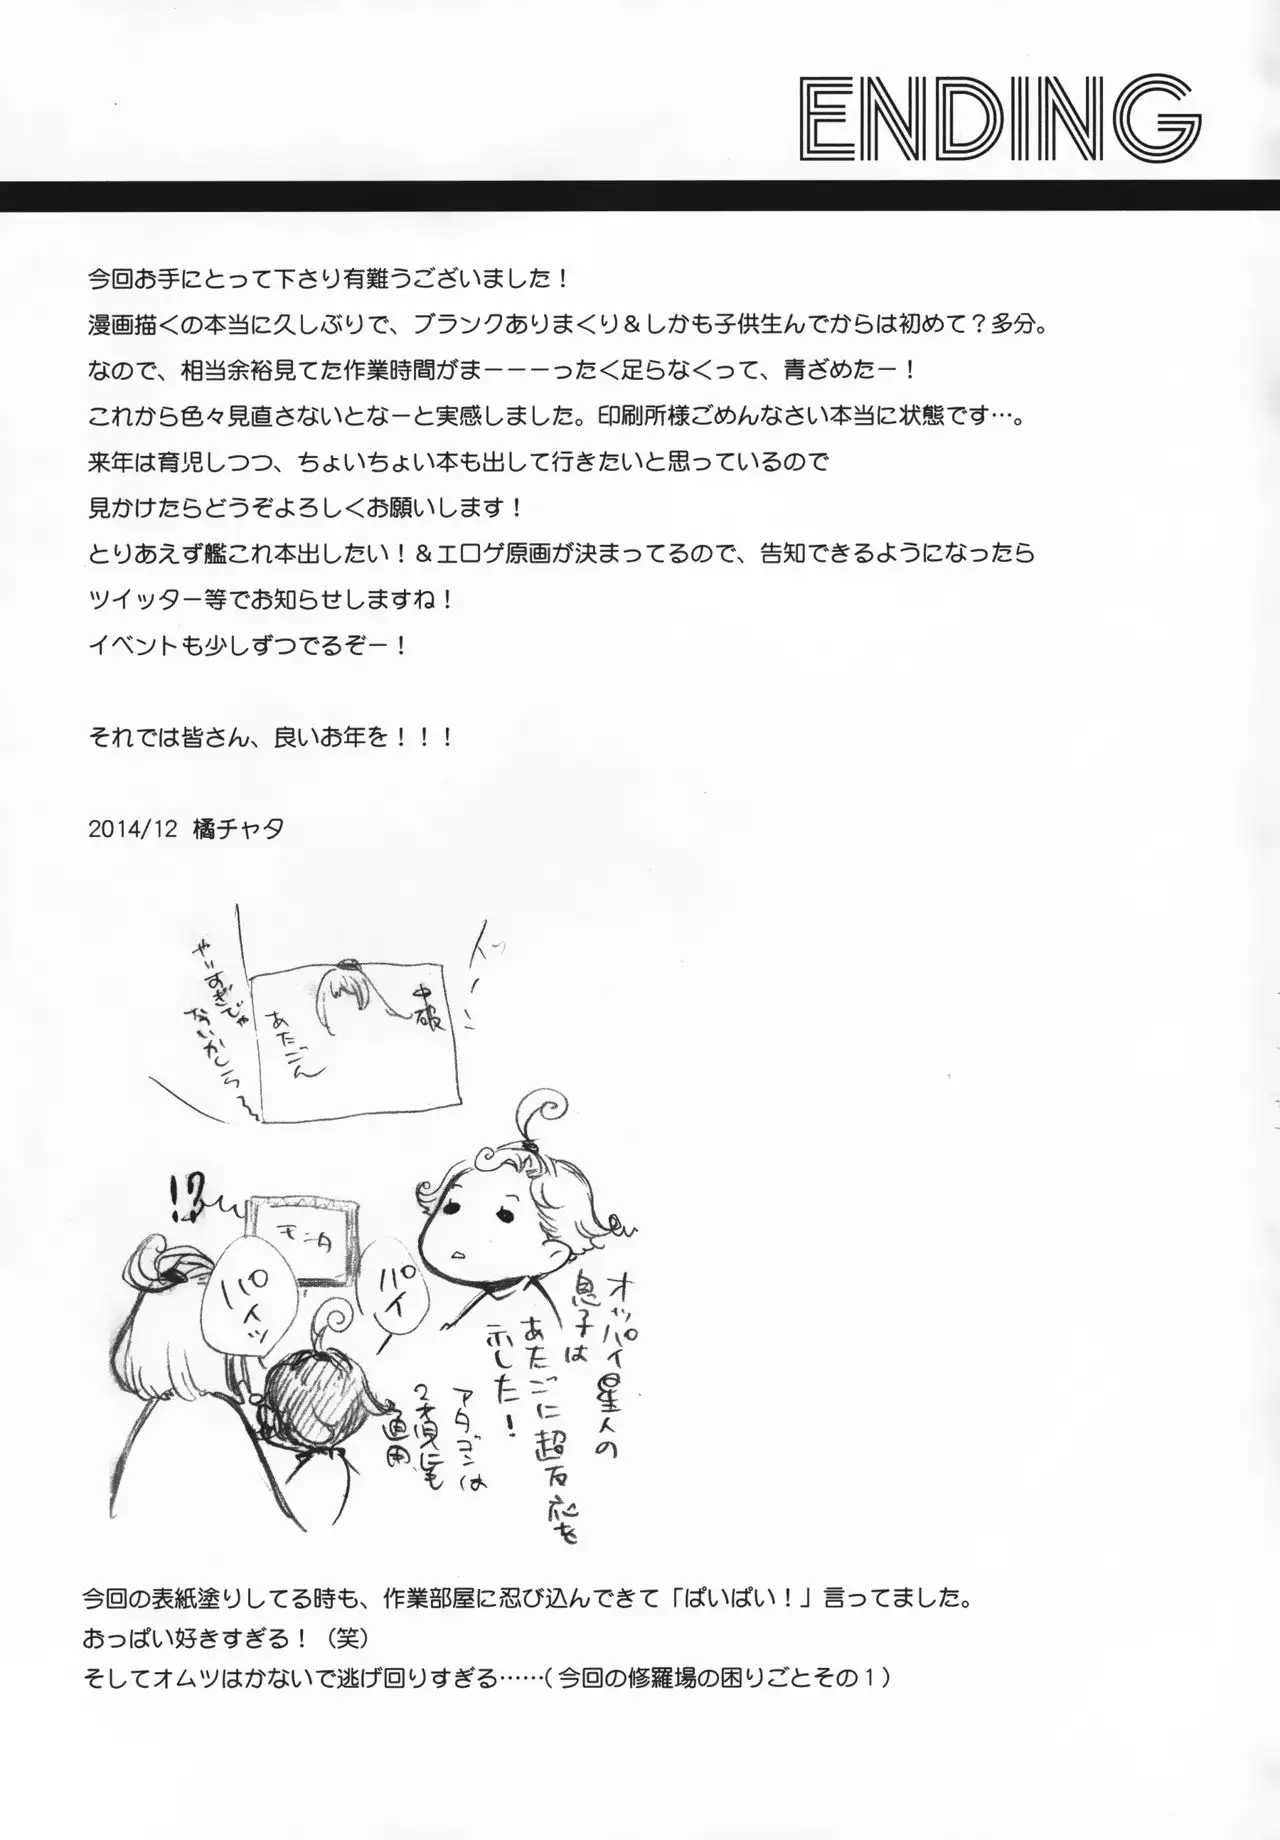 ENDING
今回お手にとって下さり有難うございました！
漫画描くの本当に久しぶりで、ブランクありまくり＆しかも子供生んでからは初めて？多分。
なので、相当余裕見てた作業時間がまーーーったく足らなくって、青ざめたー！
これから色々見直さないとなーと実感しました。印刷所様ごめんなさい本当に状態です…。
来年は育児しつつ、ちょいちょい本も出して行きたいと思っているので
見かけたらどうぞよろしくお願いします！
とりあえず艦これ本出したい！＆エロゲ原画が決まってるので、告知できるようになったら
ツイッター等でお知らせしますね！
イベントも少しずつでるぞー！
それでは皆さん、良いお年を！！！
2014/12 橘チャタ
中破
あたっごん
やりすぎじゃ
ないかしら〜〜
!?
モニタ
パイッ
パイ
オッパイ星人の
息子は
あたごに超反応を
示した！
アタゴンは
2才児にも
通用
今回の表紙塗りしてる時も、作業部屋に忍び込んできて「ぱいぱい！」言ってました。
おっぱい好きすぎる！（笑）
そしてオムツはかないで逃げ回りすぎる……（今回の修羅場の困りごとその１）